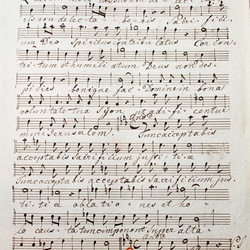 rision delec ta beris Sacrifici
um Deo Spiritus contribulatus Cor con
tritum et humili atum Deus non des
picies benigne fac Domine in bona
voluntate tua Syon Aedificentur
muri Jerusalem. Tunc acceptabis
acceptabis Sacrificium justi ti æ
Tunc acceptabis acceptabis Sacrificium jus
ti tiæ obla ti ones et ho
lo causta tunc imponent super alta